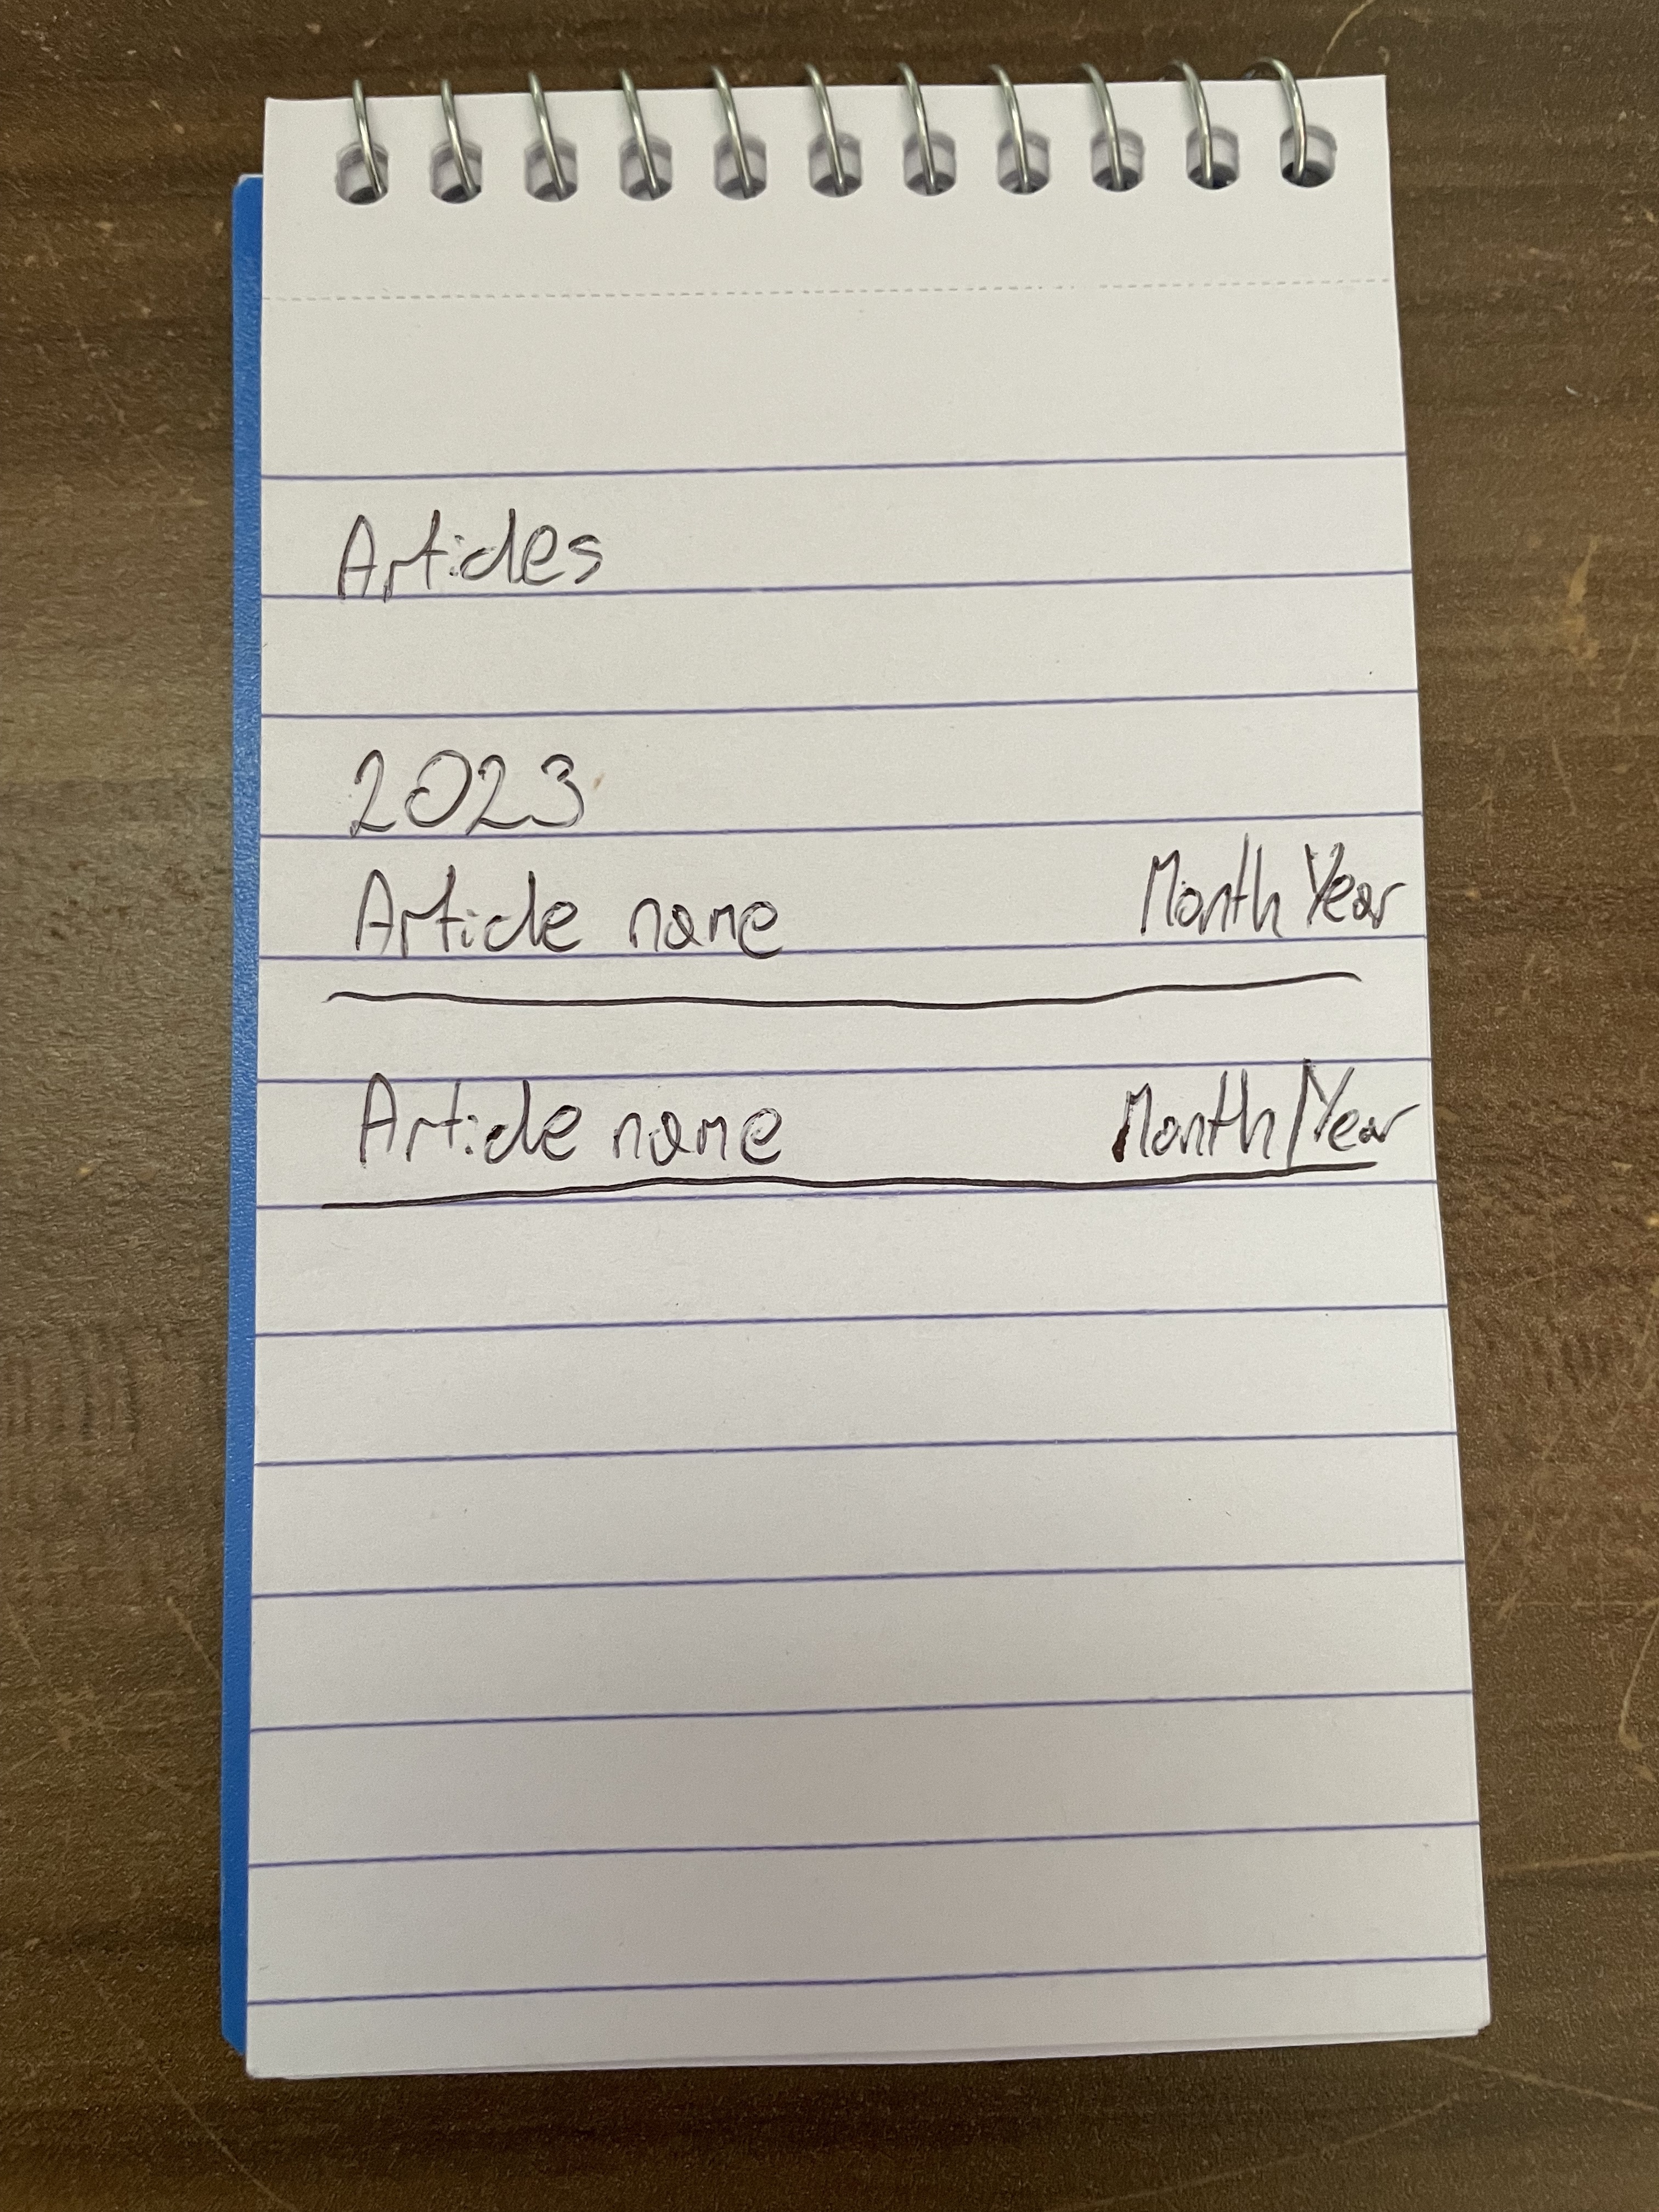 Articles
2023
Article name Month Year
Article name Month/Year